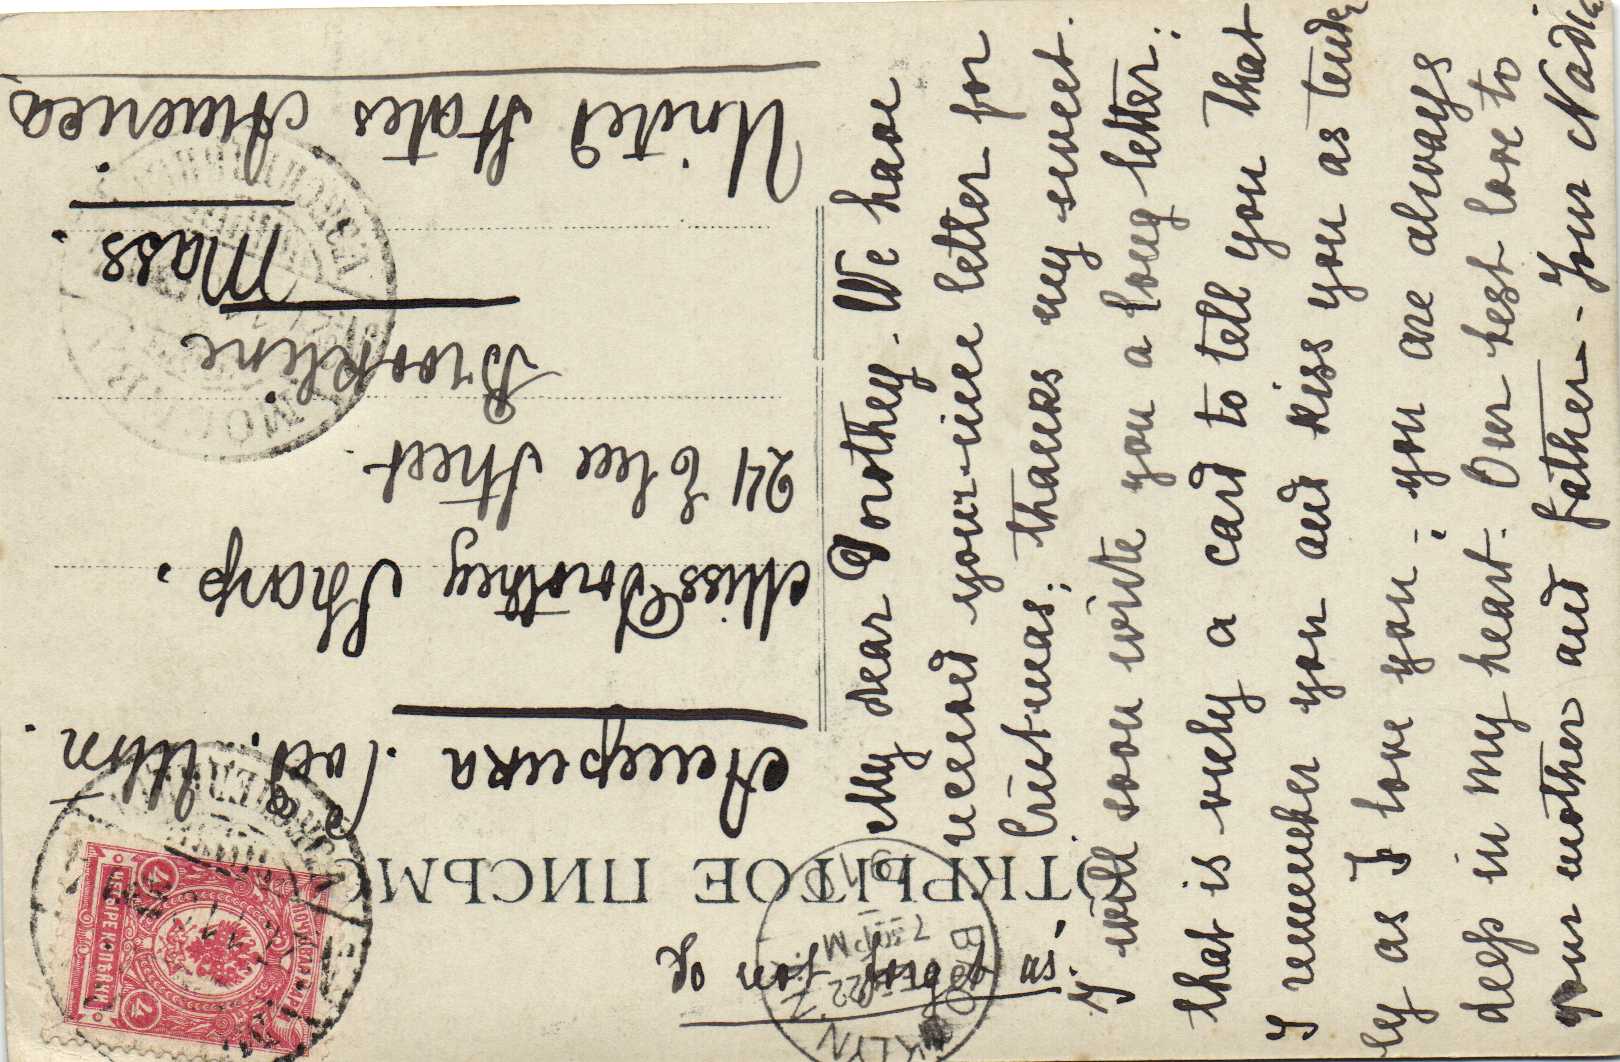 ОТКРЫТОЕ ПИСЬМО
Америка. Соед. Шт.
Miss Dorothy Sharp.
24 Street.
Brookline
Mass.
United States America
My dear Dorothy. We have
received your nice letter for
Cristmas; thanks my sweet.
I will soon write you a long letter;
that is onely a card to tell you that
I remember you and kiss you as tender
ly as I love you; you are always
deep in my heart. Our best love to
your mother and father - Your Nadia
ПОЧТОВАЯ МАРКА
ЧЕТЫРЕ КОПѢЙКИ
4
4
BROOKLYN
22
7 30 PM